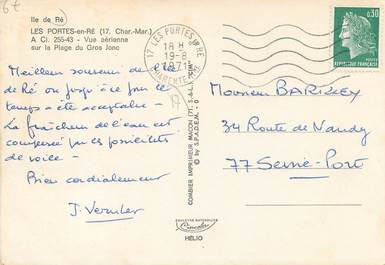 6€
Ile de Ré
LES PORTES-en-RÉ (17. Char.-Mar.)
A Ci. 255-43 - Vue aérienne
sur la Plage du Gros Jonc
17 LES PORTES EN RE
18 H
19-8
1971
CHARENTE-MME
0,30
POSTES
REPUBLIQUE FRANÇAISE
Meilleur souvenir de l'île
de Ré où jusqu'à ce jour le
temps a été acceptable -
La fraîcheur de l'eau est
compensée par les possibilités
de voile -
Bien cordialement
J. Vernier
COMBIER IMPRIMEUR MACON (71. S.-&-L.) "CIM"
© by S.P.A.D.E.M. - 0
Monsieur BARIZEY
34 Route de Nandy
77 Seine-Port
Cincolor
HÉLIO